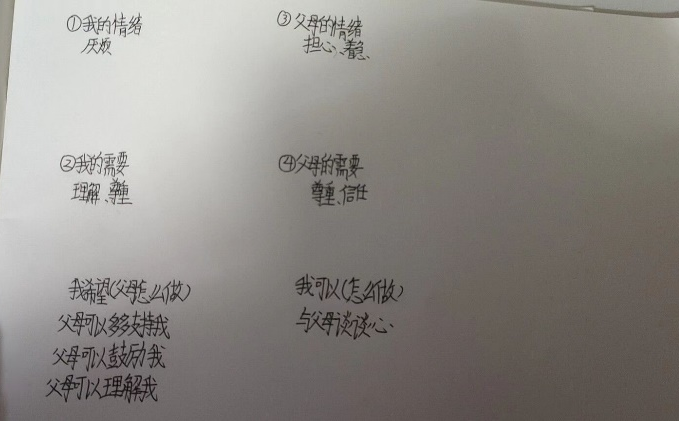 ①我的情绪
厌烦
③父母的情绪
担心、着急
②我的需要
理解、尊重
④父母的需要
尊重、信任
我希望(父母怎么做)
父母可以多多支持我
父母可以鼓励我
父母可以理解我
我可以(怎么做)
与父母谈谈心